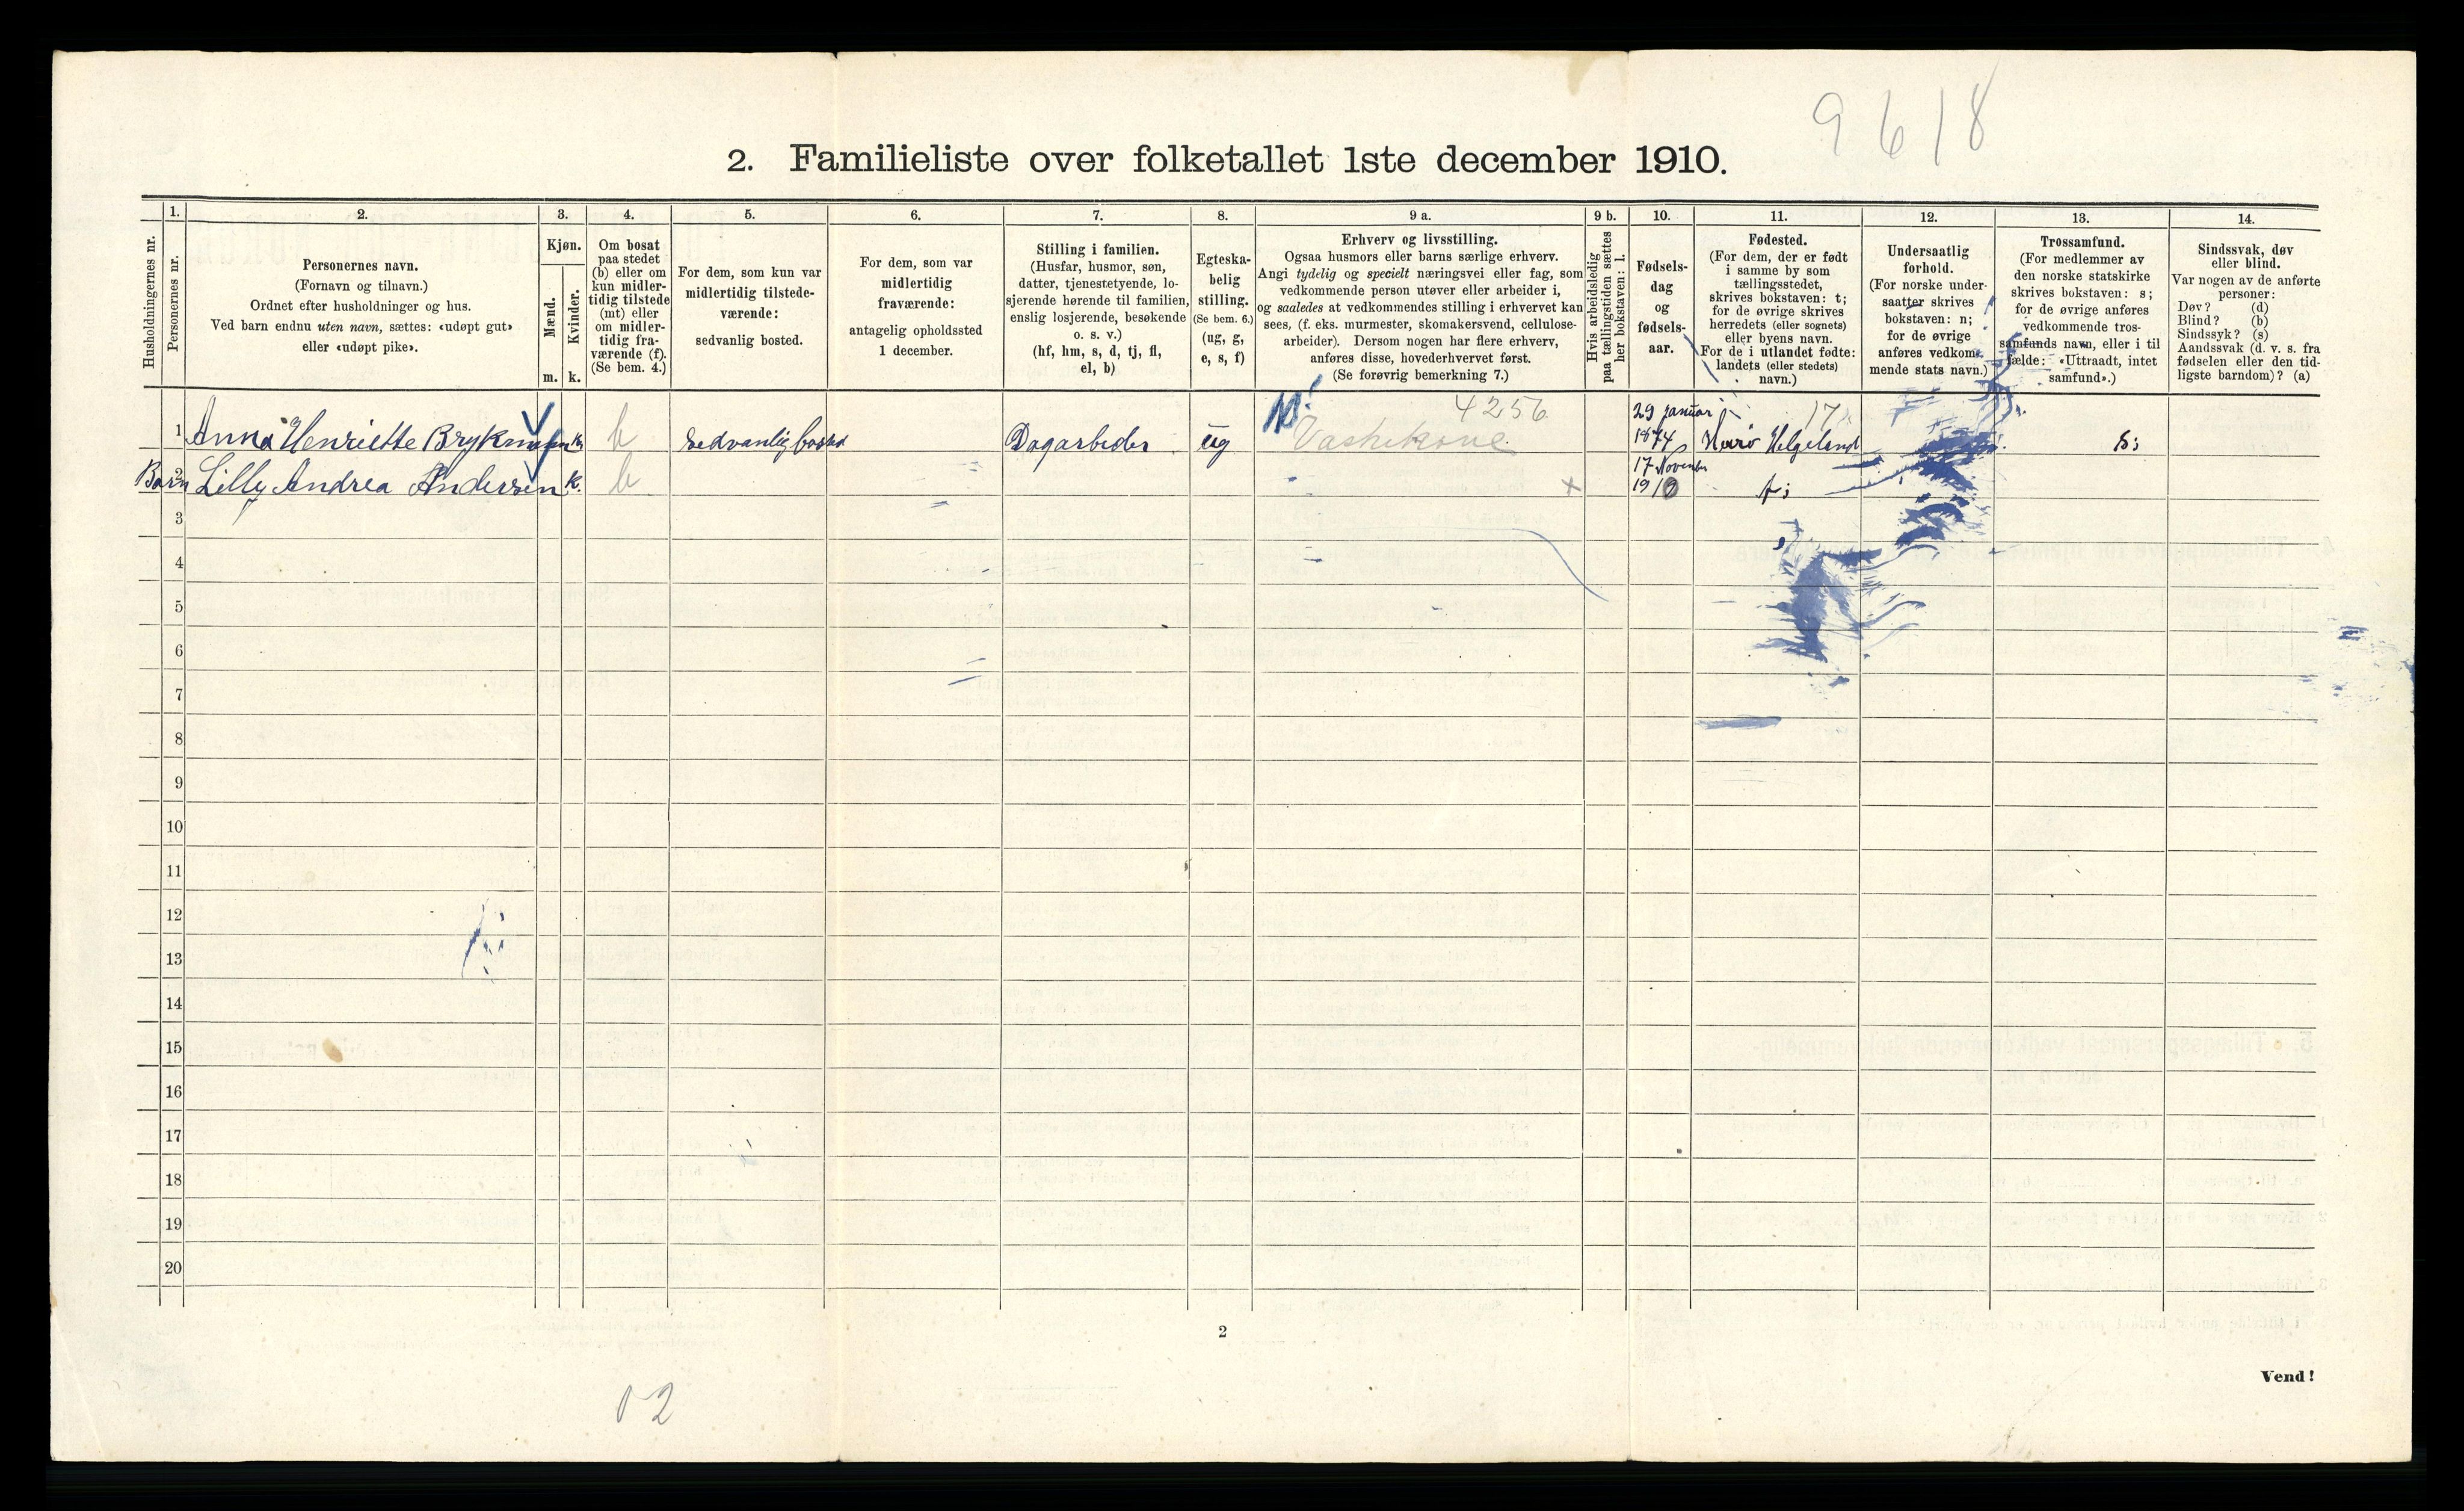 9618
2. Familieliste over folketallet 1ste december 1910.
Husholdningernes nr.
1.
Personernes nr.
2.
Personernes navn.
(Fornavn og tilnavn.)
Ordnet efter husholdninger og hus.
Ved barn endnu uten navn, sættes: «udøpt gut»
eller «udøpt pike».
3.
Kjøn.
Mænd.
m.
Kvinder.
k.
4.
Om bosat
paa stedet
(b) eller om
kun midler-
tidig tilstede
(mt) eller
om midler-
tidig fra-
værende (f).
(Se bem. 4.)
5.
For dem, som kun var
midlertidig tilstede-
værende:
sedvanlig bosted.
6.
For dem, som var
midlertidig
fraværende:
antagelig opholdssted
1 december.
7.
Stilling i familien.
(Husfar, husmor, søn,
datter, tjenestetyende, lo-
sjerende hørende til familien,
enslig losjerende, besøkende
o. s. v.)
(hf, hm, s, d, tj, fl,
el, b)
8.
Egteska-
belig
stilling.
(Se bem. 6.)
(ug, g,
e, s, f)
9 a.
Erhverv og livsstilling.
Ogsaa husmors eller barns særlige erhverv.
Angi tydelig og specielt næringsvei eller fag, som
vedkommende person utøver eller arbeider i,
og saaledes at vedkommendes stilling i erhvervet kan
sees, (f. eks. murmester, skomakersvend, cellulose-
arbeider). Dersom nogen har flere erhverv,
anføres disse, hovederhvervet først.
(Se forøvrig bemerkning 7.)
9 b.
Hvis arbeidsledig
paa tællingstiden sættes
her bokstaven: l.
10.
Fødsels-
dag
og
fødsels-
aar.
11.
Fødested.
(For dem, der er født
i samme by som
tællingsstedet,
skrives bokstaven: t;
for de øvrige skrives
herredets (eller sognets)
eller byens navn.
For de i utlandet fødte:
landets (eller stedets)
navn.)
12.
Undersaatlig
forhold.
(For norske under-
saatter skrives
bokstaven: n;
for de øvrige
anføres vedkom-
mende stats navn.)
13.
Trossamfund.
(For medlemmer av
den norske statskirke
skrives bokstaven: s;
for de øvrige anføres
vedkommende tros-
samfunds navn, eller i til
fælde: «Uttraadt, intet
samfund».)
14.
Sindssvak, døv
eller blind.
Var nogen av de anførte
personer:
Døv? (d)
Blind? (b)
Sindssyk? (s)
Aandssvak (d. v. s. fra
fødselen eller den tid-
ligste barndom)? (a)
4256 29 januar 17
1 Anna Henriette k b Sedvanlig bosted Dagarbeider ug Vaskekone 1874 Helgeland s;
17 November
Barn 2 Lilly Andrea Andersen k. b x 1910 t;
3
4
5
6
7
8
9
10
11
12
13
14
15
16
17
18
19
20
2
Vend!
0-2